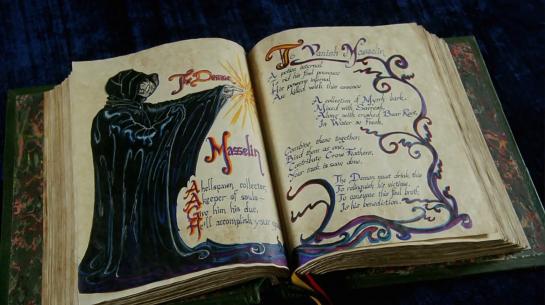 The Demon
Masselin
A hellspawn collector,
A keeper of souls—
Give him his due,
He'll accomplish your
To Vanish Masselin
A potion internal
To rid his foul presence
His powers infernal
Are killed with this essence
A collection of Myrrh bark,
Mixed with
Along with crushed Briar Root,
In Water so Fresh.
Combine these together,
Bind them as one,
Contribute Crow Feathers,
Your task is soon done.
The Demon must drink this
To relinquish his victims,
To consume this foul broth,
Is his benediction.